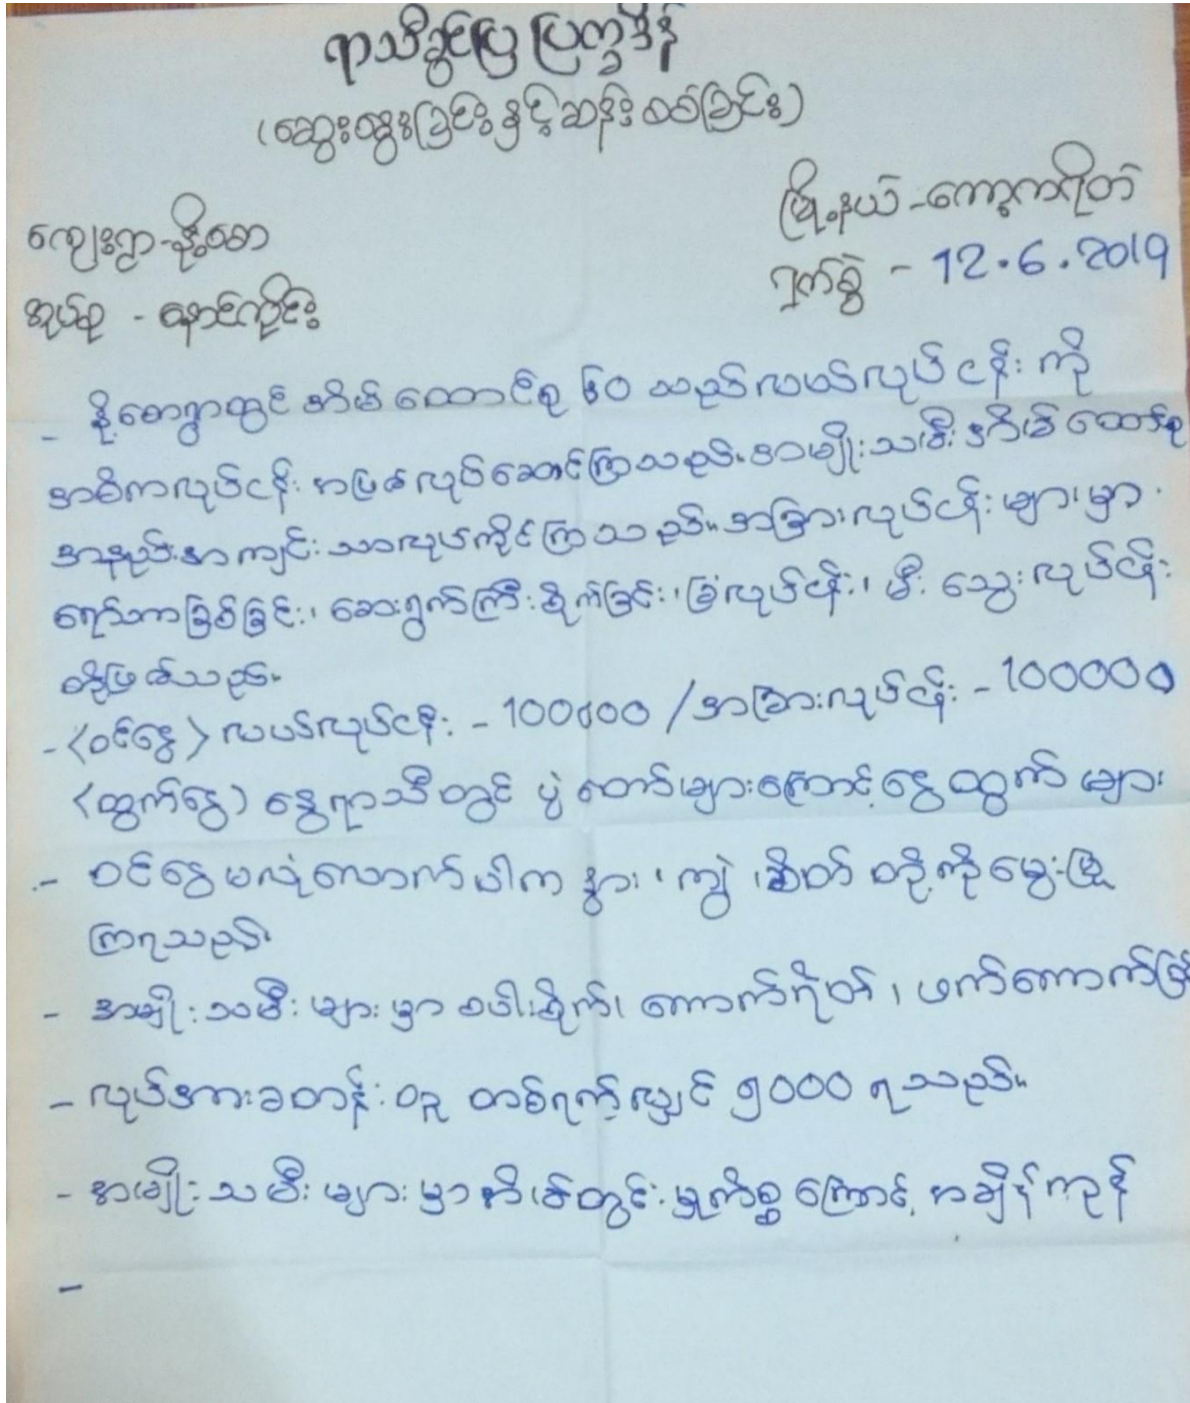 ရာသီခွင်ပြ ပြက္ခဒိန်
(ဆွေးနွေးခြင်းနှင့်ဆန်းစစ်ခြင်း)
မြို့နယ် - ကော့ကရိတ်
ကျေးရွာ - နို့စော
ရက်စွဲ - 12.6.2019
အုပ်စု - နောင်ကိုင်း
- နို့စောရွာတွင် အိမ်ထောင်စု ၆၀ သည်လယ်လုပ်ငန်း ကို
အဓိကလုပ်ငန်း အဖြစ်လုပ်ဆောင်ကြသည်။ အမျိုးသမီး ဦးစီး ထောင်စု
အနည်းအကျင်းသာလုပ်ကိုင်ကြသည်။ အခြားလုပ်ငန်းများမှာ
ရော်ဘာခြစ်ခြင်း၊ ဆေးရွက်ကြီးစိုက်ခြင်း၊ ခြံလုပ်ငန်း၊ မီးသွေးလုပ်ငန်း
တို့ဖြစ်သည်။
- <ဝင်ငွေ> လယ်လုပ်ငန်း - 100000 / အခြားလုပ်ငန်း - 100000
<ထွက်ငွေ) နွေရာသီတွင် ပွဲတော်များကြောင့်ငွေထွက် များ
- ဝင်ငွေမလုံလောက်ပါက နွား၊ ကျွဲ၊ ဆိတ် တို့ကိုမွေးမြူ
ကြရသည်။
- အမျိုးသမီးများမှာ စပါးစိုက်၊ ကောက်ရိတ်၊ ဖက်ကောက်
- လုပ်အားခတန်း တူ တစ်ရက်လျှင် ၅၀၀၀ ရသည်။
- အမျိုးသမီးများမှာအိမ်တွင်းမှုကိစ္စကြောင့် အချိန်ကုန်
-